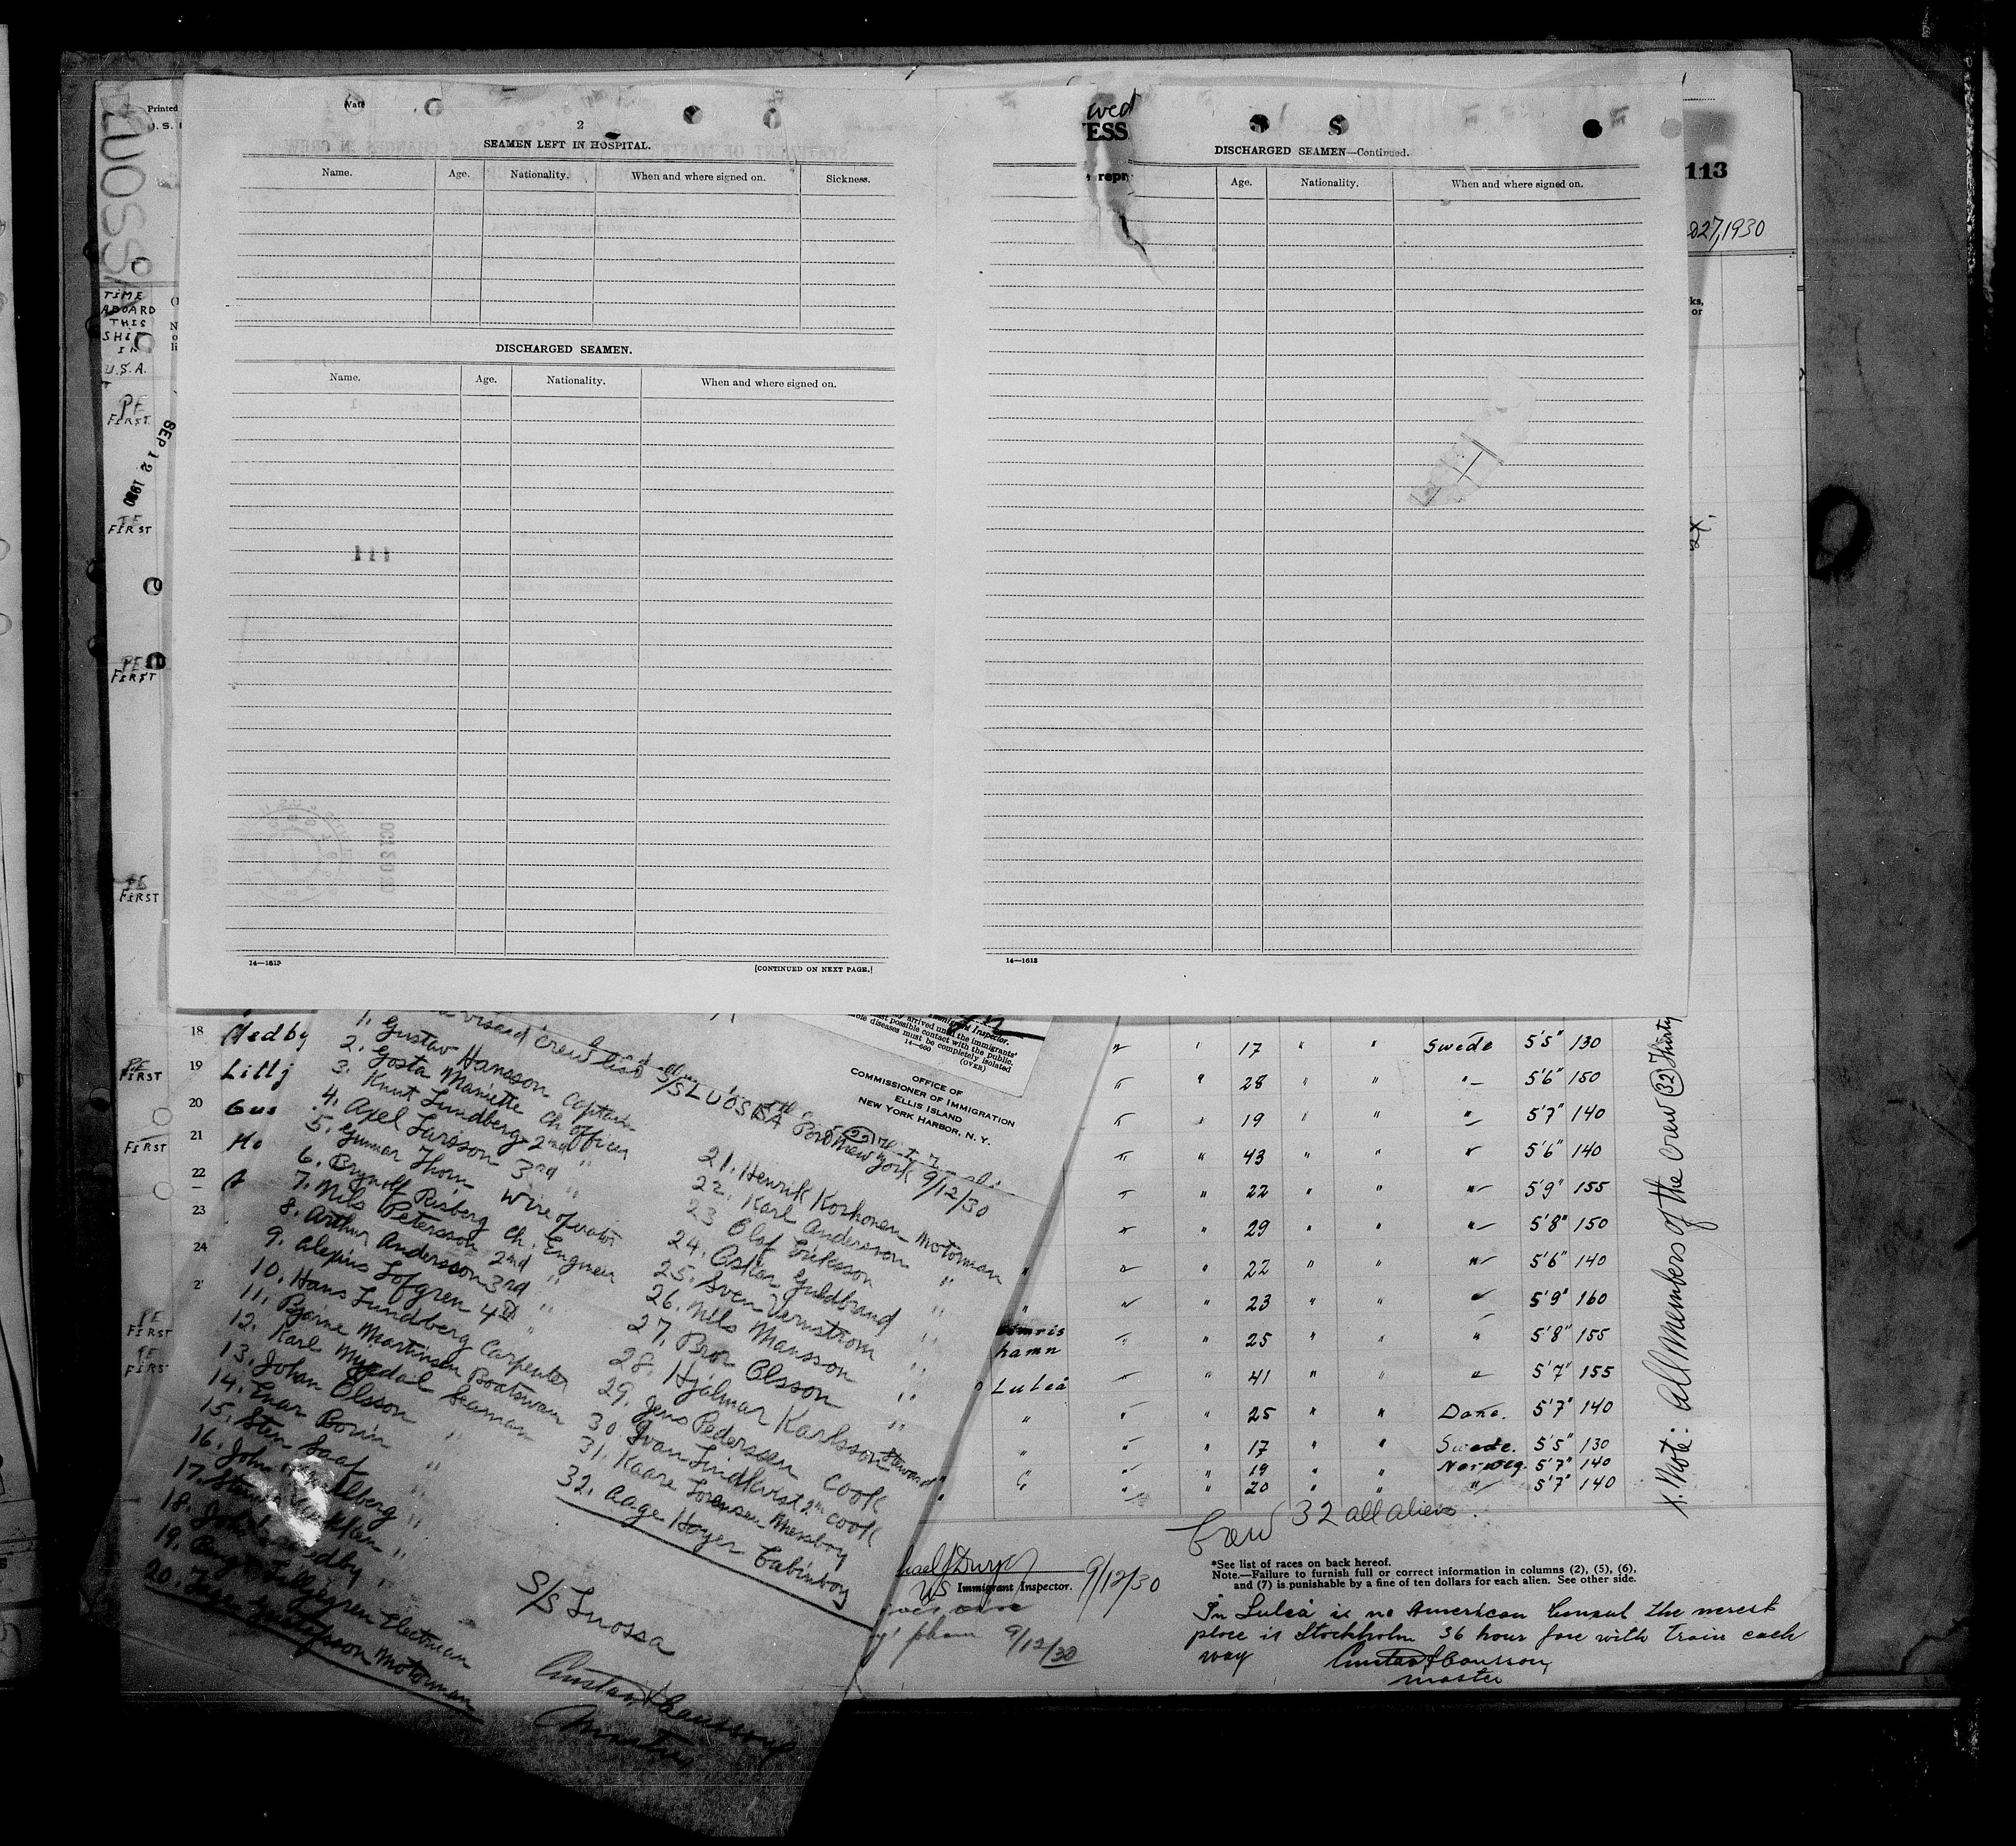 Printed
U. S.
LUOSSA
TIME
ABOARD
THIS
SHIP
IN
U.S.A.
PE
FIRST
SEP 12 1930
FIRST
PE
FIRST
PE
FIRST
2
SEAMEN LEFT IN HOSPITAL.
Name. Age. Nationality. When and where signed on. Sickness.
DISCHARGED SEAMEN.
Name. Age. Nationality. When and where signed on.
14—1613
[CONTINUED ON NEXT PAGE.]
ved
ESS
repr
DISCHARGED SEAMEN—Continued.
Age. Nationality. When and where signed on.
14—1613
113
27, 1930
ks,
or
18 Hedby
PE
FIRST
19 Lillj
20 Gus
FIRST
21 Ho
22
23
24
PE
FIRST
PE
FIRST
crew list S/S LUOSSA Port New York 9/12/30
1. Gustav Hansson Captain
2. Gosta Mariette Ch. officer
3. Knut Lundberg 2nd "
4. Axel Larsson 3rd "
5. Gunnar Thorn Wire operator
6. Brynolf Risberg Ch. Engineer
7. Nils Petersson 2nd "
8. Arthur Andersson 3rd "
9. Alexius Lofgren 4th "
10. Hans Lundberg Carpenter
11. Bjarne Martinsen Boatswain
12. Karl Myrdal Seaman
13. Johan Olsson "
14. Enar Borin "
15. Sten Saaf "
16. John
17.
18. Hedby "
19. Lilljegren Electrician
20. Inge Gustafsson Motorman
21. Henrik Korhonen Motorman
22. Karl Andersson "
23 Olof Eriksson "
24. Oskar Guldbrand "
25. Sven Vernstrom "
26. Nils Mansson "
27. Bror Olsson "
28. Hjalmar Karlsson Steward
29. Jens Pedersen Cook
30 Ivan Lindkvist 2nd Cook
31. Kaare Lorensen Messboy
32. Aage Hoyer Cabinboy
S/S Luossa
Gustav Hansson
Master
Immigrant Inspector.
arrived until the immigrants'
possible contact with the public.
diseases must be completely isolated
14—600
(OVER)
OFFICE OF
COMMISSIONER OF IMMIGRATION
ELLIS ISLAND
NEW YORK HARBOR, N. Y.
" 17 " " Swede 5'5" 130
" 28 " " " 5'6" 150
" 19 " " " 5'7" 140
" 43 " " " 5'6" 140
" 22 " " " 5'9" 155
" 29 " " " 5'8" 150
" 22 " " " 5'6" 140
" 23 " " " 5'9" 160
hamn " 25 " " " 5'8" 155
Luleå " 41 " " " 5'7" 155
" " 25 " " Dane. 5'7" 140
" " 17 " " Swede. 5'5" 130
" " 19 " " Norweg. 5'7" 140
" 20 " " " 5'7" 140
x. Note: All Members of the Crew (32) Thirty
Crew 32 all aliens.
US Immigrant Inspector. 9/12/30
9/12/30
*See list of races on back hereof.
Note.—Failure to furnish full or correct information in columns (2), (5), (6),
and (7) is punishable by a fine of ten dollars for each alien. See other side.
In Luleå is no American Consul the nerest
place is Stockholm 36 hour fare with train each
way Gustav Hansson
master